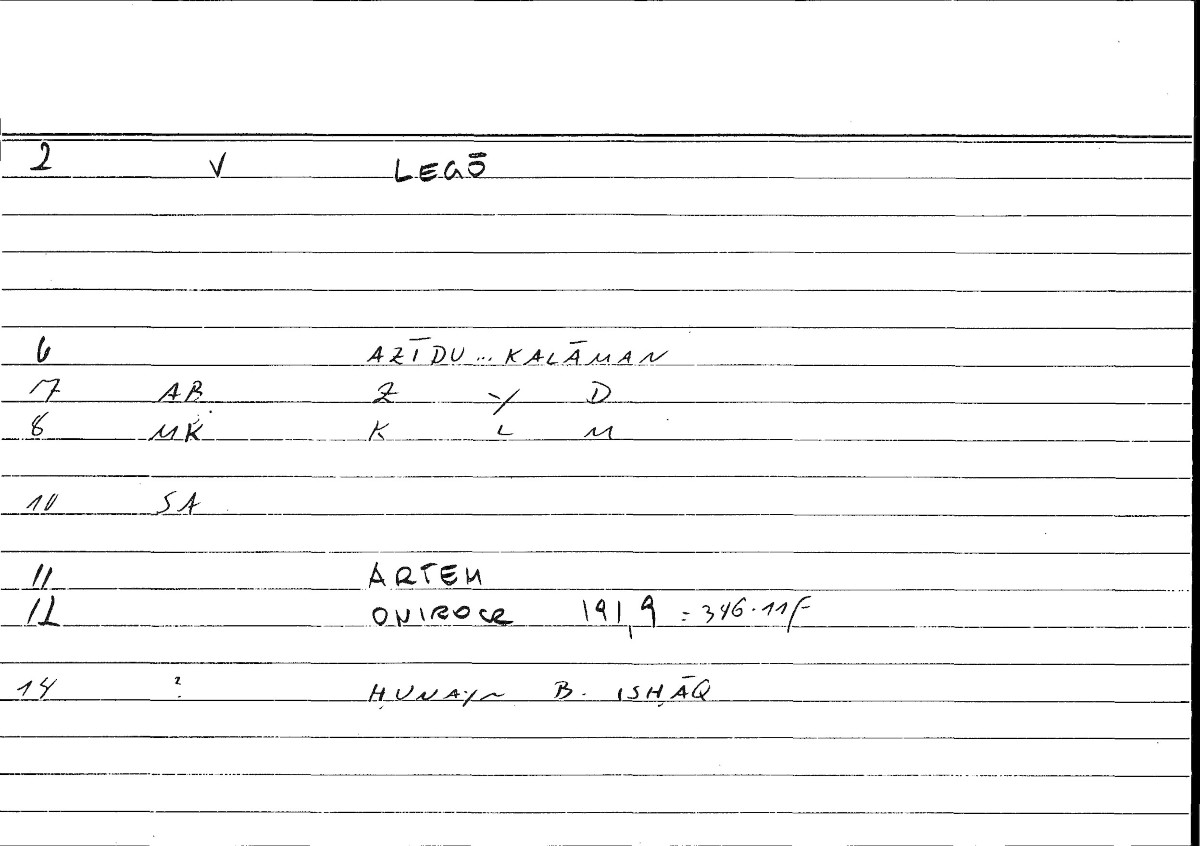 2 V LEGŌ
6 AZĪDU... KALĀMAN
7 AB Z -Y D
8 MK K L M
10 SA
11 ARTEM
12 ONIROCR 191,9 = 346.11f
14 ? ḤUNAYN B. ISḤĀQ